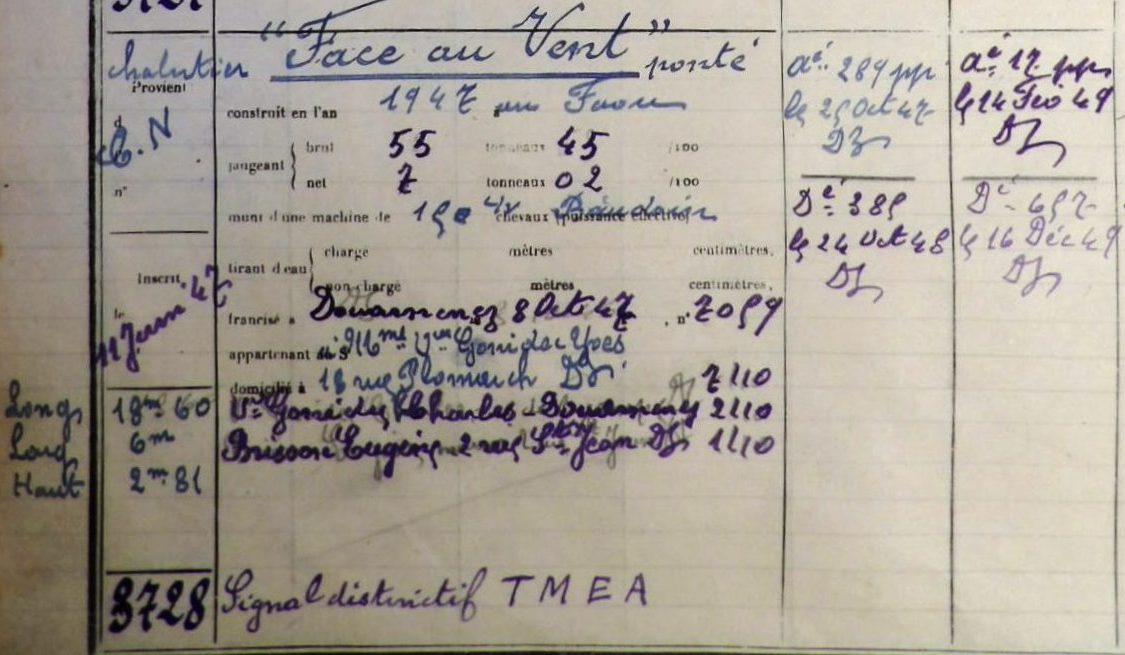 chalutier "Face au Vent" ponté
Provient
d
C. N
n°
construit en l'an 1947 au Faou
jaugeant
brut 55 tonneaux 45 /100
net 7 tonneaux 02 /100
muni d'une machine de 150 cv chevaux (puissance effective) Baudouin
Inscrit
le
11 Juin 47
tirant d'eau
charge mètres centimètres,
non chargé mètres centimètres,
francisé à Douarnenez 8 Oct 47, n° 7059
appartenant à Mme Vve Gonidec Yves
domicilié à 18 rue Plomarch DZ 7/10
Vve Gonidec Charles Douarnenez 2/10
Brisson Eugène 2 rue St Jean DZ 1/10
Long 18m 60
Larg 6m
Haut 2m 81
3728
Signal distinctif T M E A
Aé 289 pp
le 25 Oct 47
DZ
Dé 385
le 24 Oct 48
DZ
Aé 17 pp
le 14 Fev 49
DZ
Dé 657
le 16 Déc 49
DZ